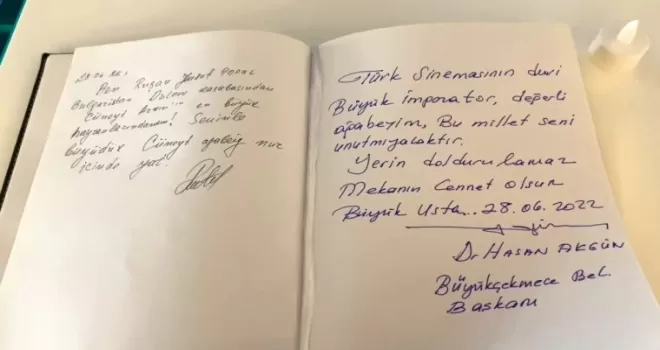 28.06.22
Ben Ruşan
Bulgaristan kasabasından
Cüneyt Arkın'ın en büyük
hayranlarındanım! Seninle
büyüdük Cüneyt ağabey nur
içinde yat!
Türk Sinemasının devi
Büyük İmporator, değerli
ağabeyim, Bu millet seni
unutmıyacaktır.
Yerin doldurulamaz
Mekanın Cennet olsun
Büyük Usta.. 28.06.2022
Dr HASAN AKGÜN
Büyükçekmece Bel.
Başkanı